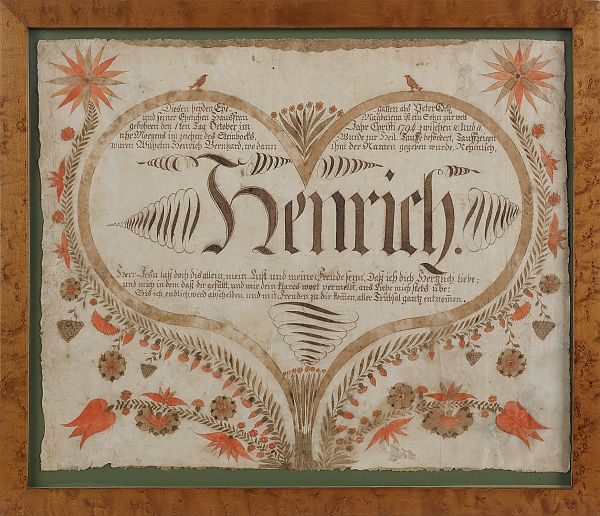 Diesen beyden Ehe gatten als Peter
und seiner Ehelichen Hausfrau Magdalena ist ein Sohn zur welt
gebohren den 1ten Tag October im Jahr Christi 1794 zwischen 10 und 11
uhr Morgens im zeichen des Steinbocks, Wurde zur Heil. Tauffe befördert, Tauffzeugen
waren Wilhelm Henrich Bernhard, wo dann ihm der Namen gegeben wurde, Nehmlich,
Henrich.
Herr Jesu laß doch dis allein, mein Lust und meine Freude seyn, Daß ich dich Hertzlich liebe;
und mich in dem daß dir gefällt, und mir dein klares wort vermeldt, aus Liebe mich stets übe:
Bis ich, endlich werd abscheiden, und mit Freuden zu dir komen, aller Trübsal gantz entnomen.